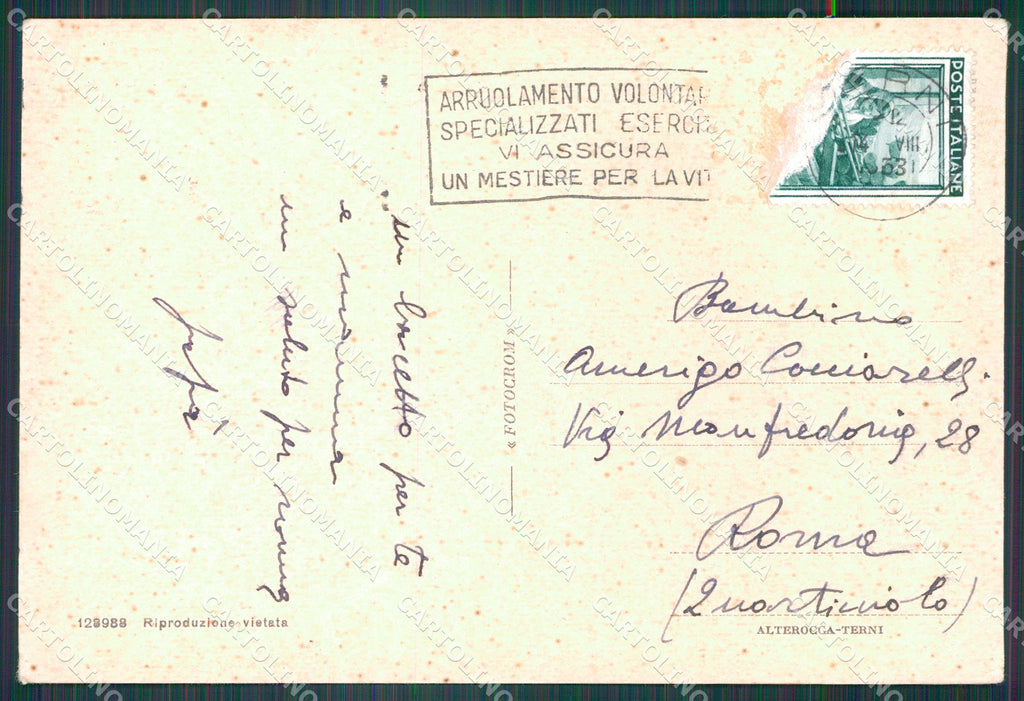 ARRUOLAMENTO VOLONTAR
SPECIALIZZATI ESERCIT
VI ASSICURA
UN MESTIERE PER LA VIT
POSTE ITALIANE
VIII
53
un bacetto per te
e mamma
un saluto per nonna
« FOTOCROM »
Bambino
Amerigo
Via Manfredonia, 28
Roma
(Quarticciolo)
128988 Riproduzione vietata
ALTEROCCA-TERNI
CARTOLINOMANIA